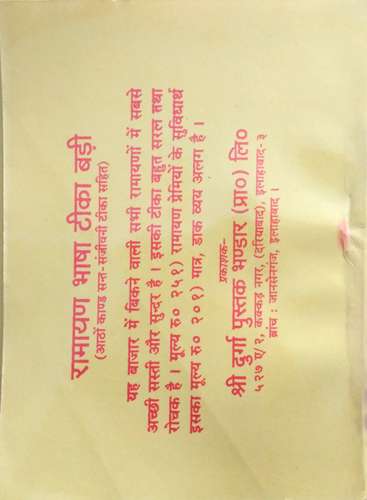 रामायण भाषा टीका बड़ी
(आठों काण्ड सन्त-संजीवनी टीका सहित)
यह बाजार में बिकने वाली सभी रामायणों में सबसे
अच्छी सस्ती और सुन्दर है। इसकी टीका बहुत सरल तथा
रोचक है। मूल्य रु० २५१) रामायण प्रेमियों के सुविधार्थ
इसका मूल्य रु० २०१) मात्र, डाक व्यय अलग है।
प्रकाशक-
श्री दुर्गा पुस्तक भण्डार (प्रा०) लि०
५२७ ए/२, कक्कड़ नगर, (दरियाबाद), इलाहाबाद-३
ब्रांच : जानसेनगंज, इलाहाबाद।